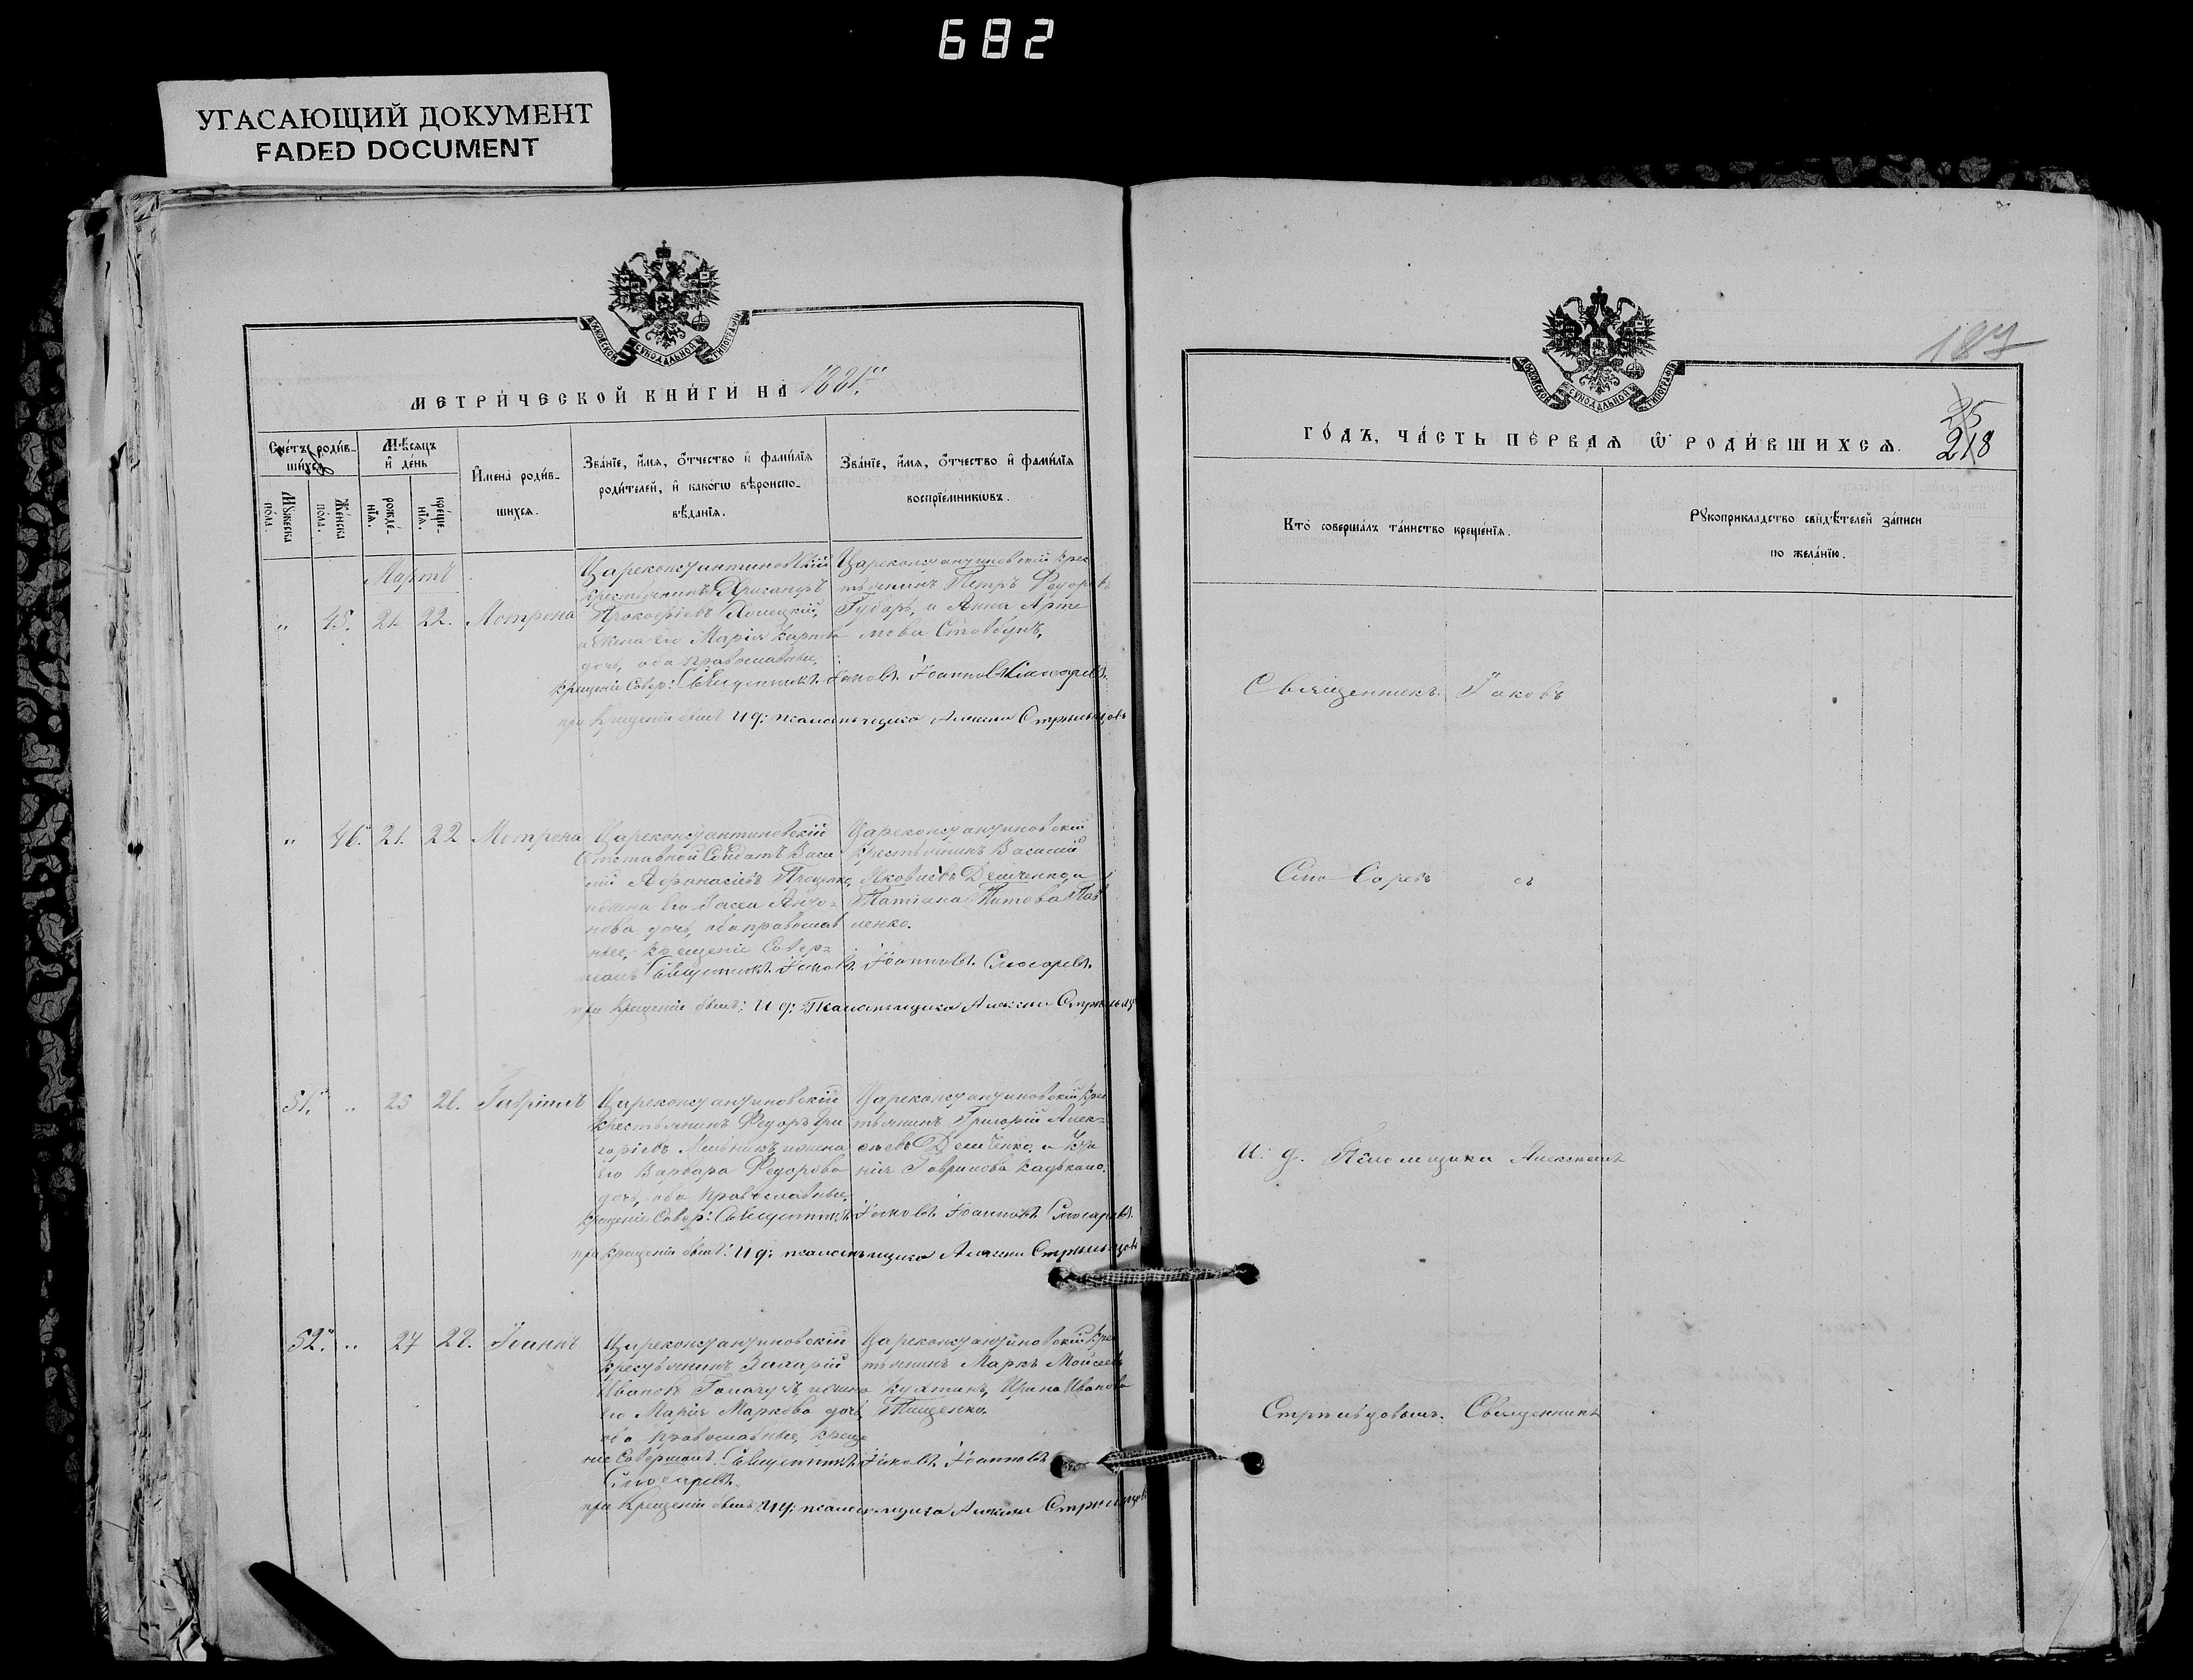 682
УГАСАЮЩИЙ ДОКУМЕНТ
FADED DOCUMENT
МОСКОВСКОЙ СѴНОДАЛЬНОЙ ТИПОГРАФІИ
МЕТРИ́ЧЕСКОЙ КНИ́ГИ НА 1881.
Сче́тъ роди́в-
ши́хся
Мѣ́сяцъ
и҆ де́нь
Мꙋ́жеска по́ла.
Же́нска по́ла.
рожде́-
нїѧ.
креще́-
нїѧ.
И҆мена̀ роди́в-
шихся.
Зва́нїе, и҆́мѧ, ѻ҆́тчество и҆ фами́лїѧ
роди́телей, и҆ како́гѡ вѣроиспо-
вѣ́данїѧ.
Зва́нїе, и҆́мѧ, ѻ҆́тчество и҆ фами́лїѧ
воспрїе́мникѡвъ.
Мартъ
" 45. 21. 22. Мотрона
Цареконстантиновскій
Крестьянинъ
Прокофіевъ
и жена его Марія Карпова
дочь, оба православные,
Крещеніе Совер: Священникъ Іаковъ Іоанновъ Слюсаревъ.
при Крещеніи былъ И д: псаломщика Алексей Стрельцовъ
Цареконстантиновскій Крес
тьянинъ Петръ Федоровъ
Губарь, и Анна Арте
мова Стовбунъ,
" 46. 21. 22 Мотрона
Цареконстантиновскій
Отставной Солдатъ Васи
лій Афанасіевъ
жена его
нова дочь, оба православ
ные, Крещеніе Совер=
шалъ Священникъ Іаковъ Іоанновъ Слюсаревъ.
при Крещеніи былъ: И д: Псаломщика Алексей Стрельцо
Цареконстантиновскій
Крестьянинъ Василій
Яковлевъ Демченко, и
Татіана Титова Пав
ленко.
51. " 25 26. Гавріилъ
Цареконстантиновскій
Крестьянинъ Федоръ Гри
горіевъ Мельникъ, и жена
его Варвара Федорова
дочь, оба православные,
Крещеніе Совер: Священникъ Іаковъ Іоанновъ Слюсаревъ.
при Крещеніи былъ: И д: псаломщика Алексей Стрельцовъ
Цареконстантиновскій Крес
тьянинъ Григорій Алек=
сеевъ Демченко, и
Гаврилова
52. " 27 28. Іоаннъ
Цареконстантиновскій
Крестьянинъ Захарій
Ивановъ и жена
его Марія Маркова дочь
оба православные, Креще
ніе Совершалъ Священникъ Іаковъ Іоанновъ
Слюсаревъ.
при Крещеніи былъ И д: псаломщика Алексей Стрельцовъ
Цареконстантиновскій Крес
тьянинъ Маркъ Моисеевъ
Ирина Иванова
Тищенко.
МОСКОВСКОЙ СѴНОДАЛЬНОЙ ТИПОГРАФІИ
187
25
218
ГО́ДЪ, ЧА́СТЬ ПЕ́РВАѦ Ѽ РОДИ́ВШИХСѦ.
Кто̀ соверша́лъ та́инство креще́нїѧ.
Рꙋкоприкла́дство свидѣ́телей за́писи
по жела́нїю.
Священникъ Іаковъ
Слю Саревъ съ
И. д. Псаломщика Алексеемъ
Стрельцовымъ. Священникъ